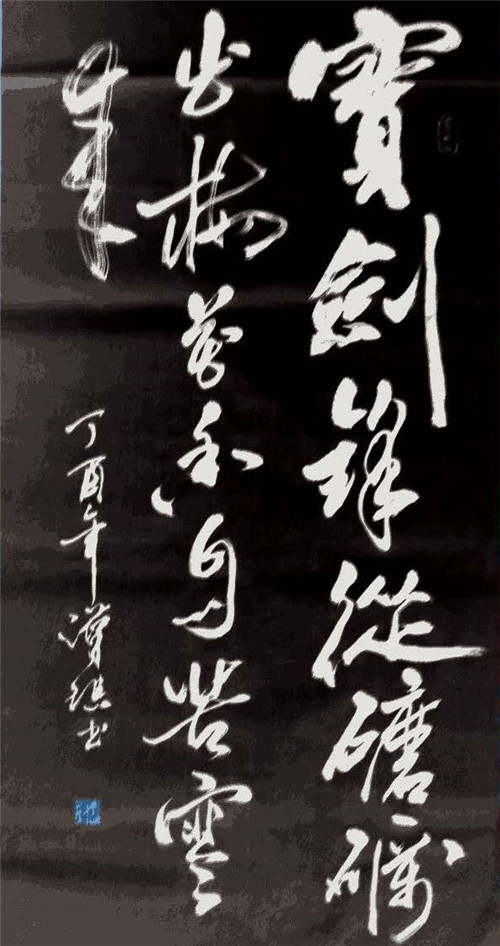 寶劍鋒從磨礪
出梅花香自苦寒
來
丁酉年
書